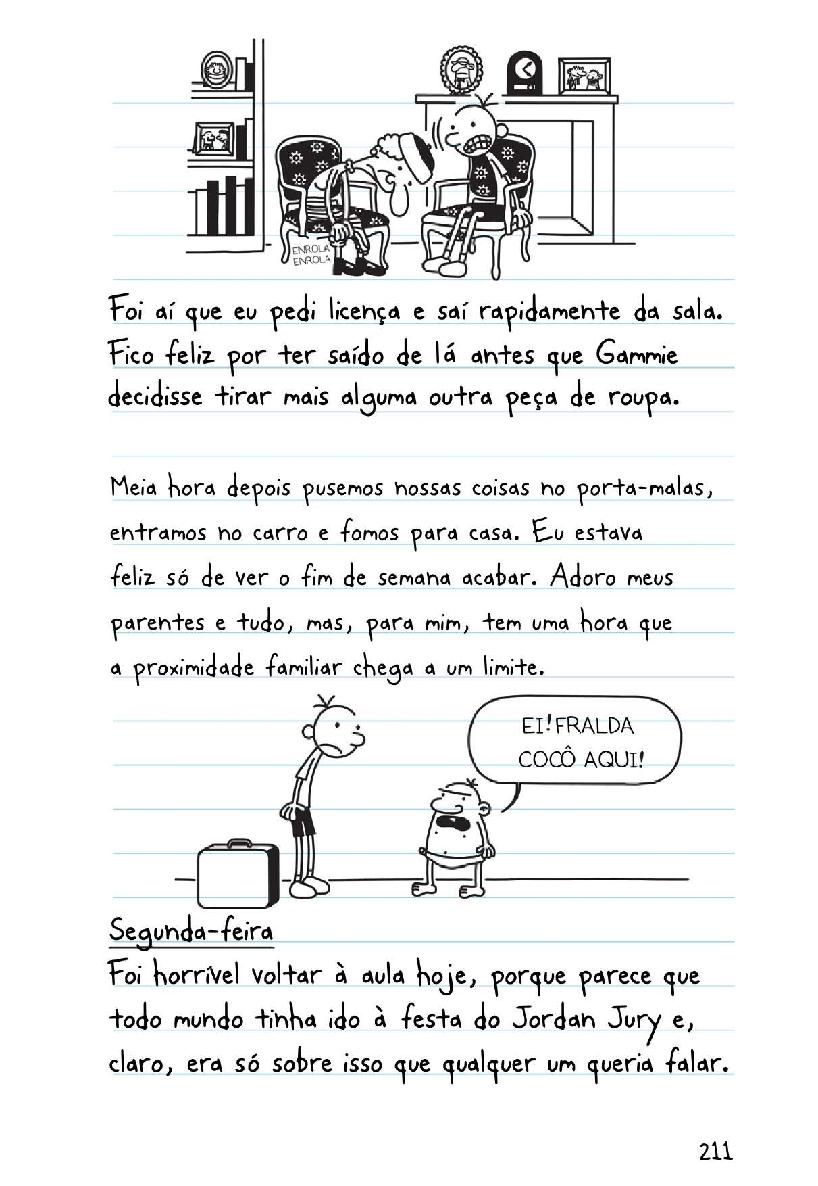 ENROLA
ENROLA
Foi aí que eu pedi licença e saí rapidamente da sala.
Fico feliz por ter saído de lá antes que Gammie
decidisse tirar mais alguma outra peça de roupa.
Meia hora depois pusemos nossas coisas no porta-malas,
entramos no carro e fomos para casa. Eu estava
feliz só de ver o fim de semana acabar. Adoro meus
parentes e tudo, mas, para mim, tem uma hora que
a proximidade familiar chega a um limite.
EI! FRALDA
COCÔ AQUI!
Segunda-feira
Foi horrível voltar à aula hoje, porque parece que
todo mundo tinha ido à festa do Jordan Jury e,
claro, era só sobre isso que qualquer um queria falar.
211